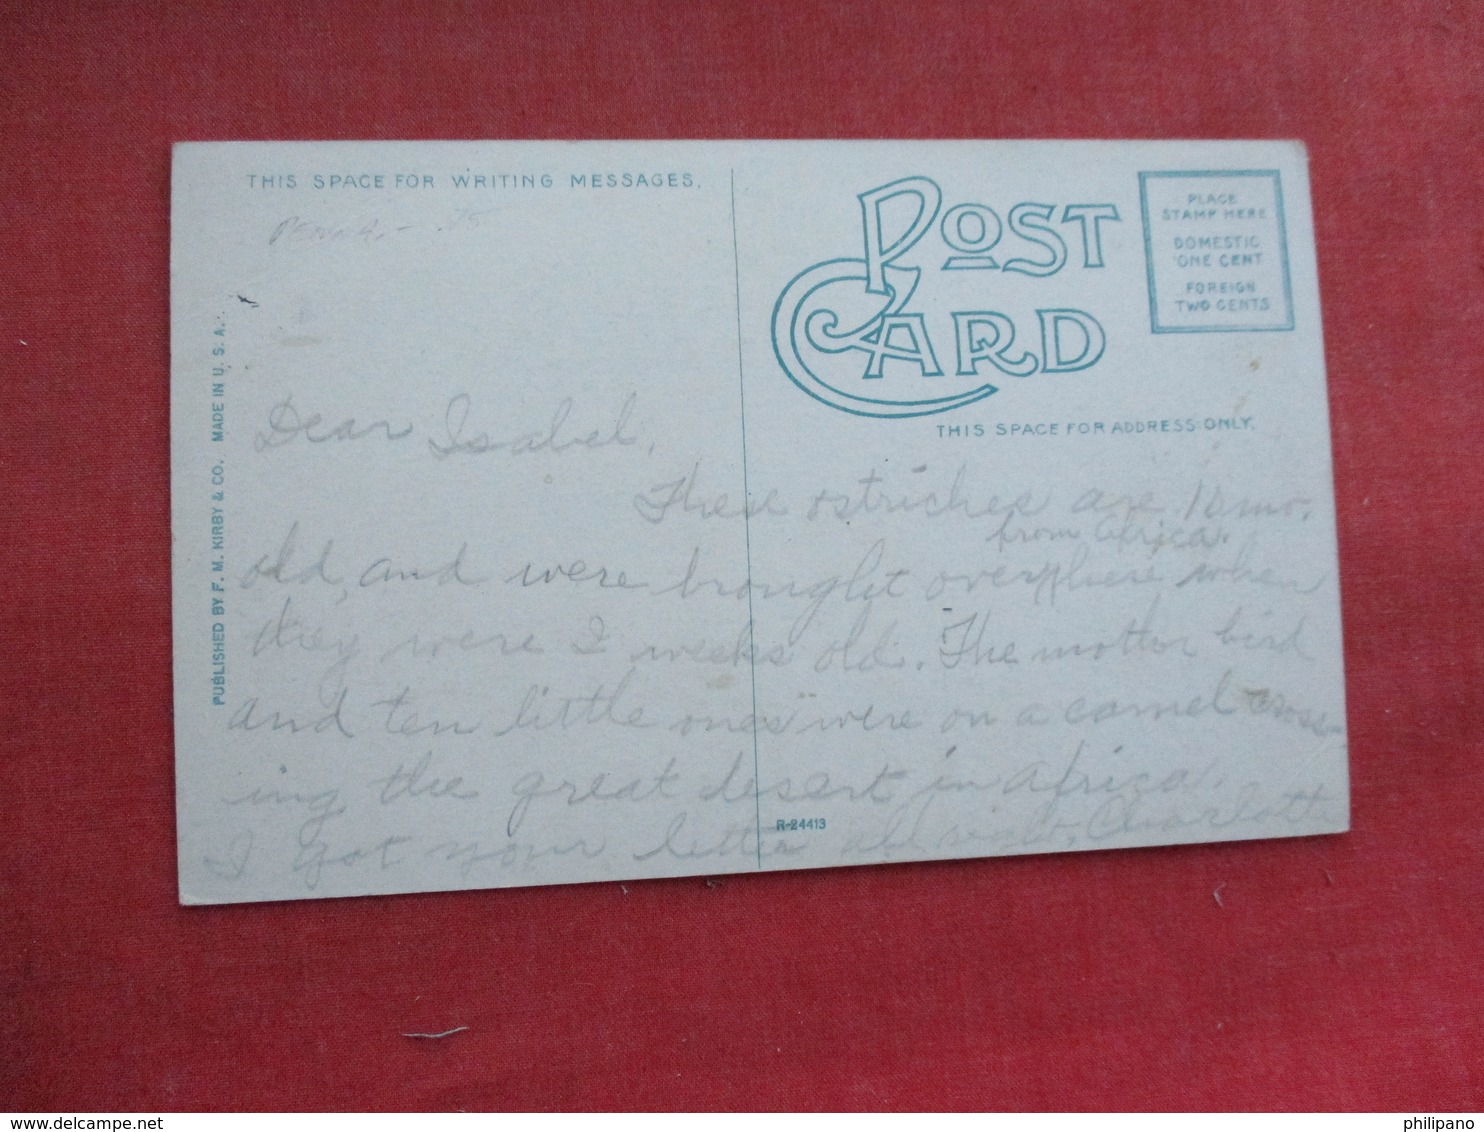 THIS SPACE FOR WRITING MESSAGES.
PENNA. - .75
PUBLISHED BY F. M. KIRBY & CO. MADE IN U. S. A.
POST CARD
PLACE
STAMP HERE
DOMESTIC
ONE CENT
FOREIGN
TWO CENTS
THIS SPACE FOR ADDRESS ONLY.
Dear Isabel,
These ostriches are 10 mo.
from Africa
old, and were brought over here when
they were 2 weeks old. The mother bird
and ten little ones were on a camel cross-
ing the great desert in Africa.
I got your letter Charlotte
R-24413
www.delcampe.net
philipano